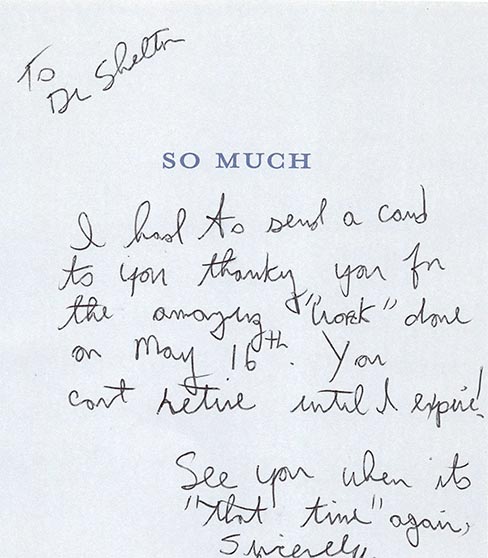 To
Dr Shelton
SO MUCH
I had to send a card
to you thanking you for
the amazing "work" done
on May 16th. You
cant retire until I expire!
See you when its
"that time" again,
Sincerely,